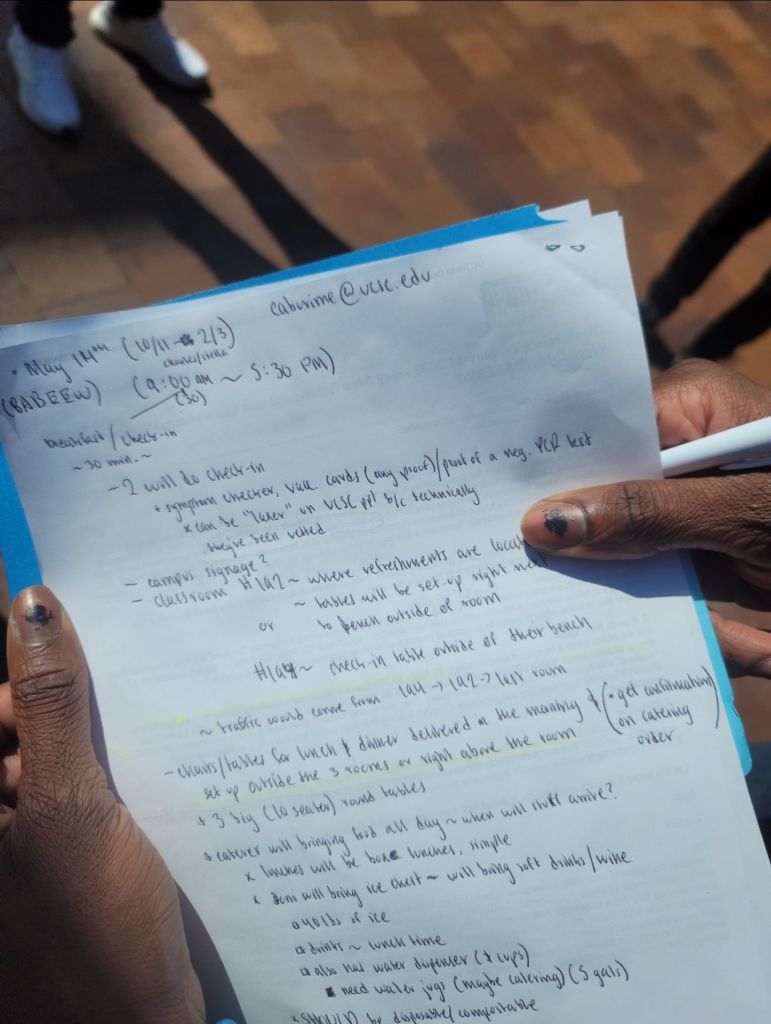 caburime@ucsc.edu
• May 14th (10/11 → 2/3)
charles/stella
(BABEEW) (9:00 AM ~ 5:30 PM)
(30)
breakfast/check-in
~30 min.~
- 2 will do check-in
+ symptom checker, vacc cards (any proof)/proof of a neg. PCR test
* can be "laxer" on UCSC ppl b/c technically
they've been vetted
- campus signage?
- classroom #1A2 ~ where refreshments are
~ tables will be set-up right
or to bench outside of room
~ check-in table outside of their bench
~ traffic would come from → 1A2 → last room
- chairs/tables for lunch & dinner delivered in the morning & (• get confirmation
set up outside the 3 rooms or right above the room on catering
order)
+ 3 big (10 seater) round tables
+ caterer will bringing food all day ~ when will stuff arrive?
x lunches will be box lunches, simple
x Domi will bring ice chest ~ will bring soft drinks/wine
40 lbs of ice
drinks ~ lunch time
also has water dispenser (& cups)
need water jugs (maybe catering) (5 gals)
SHOULD be disposable/compostable